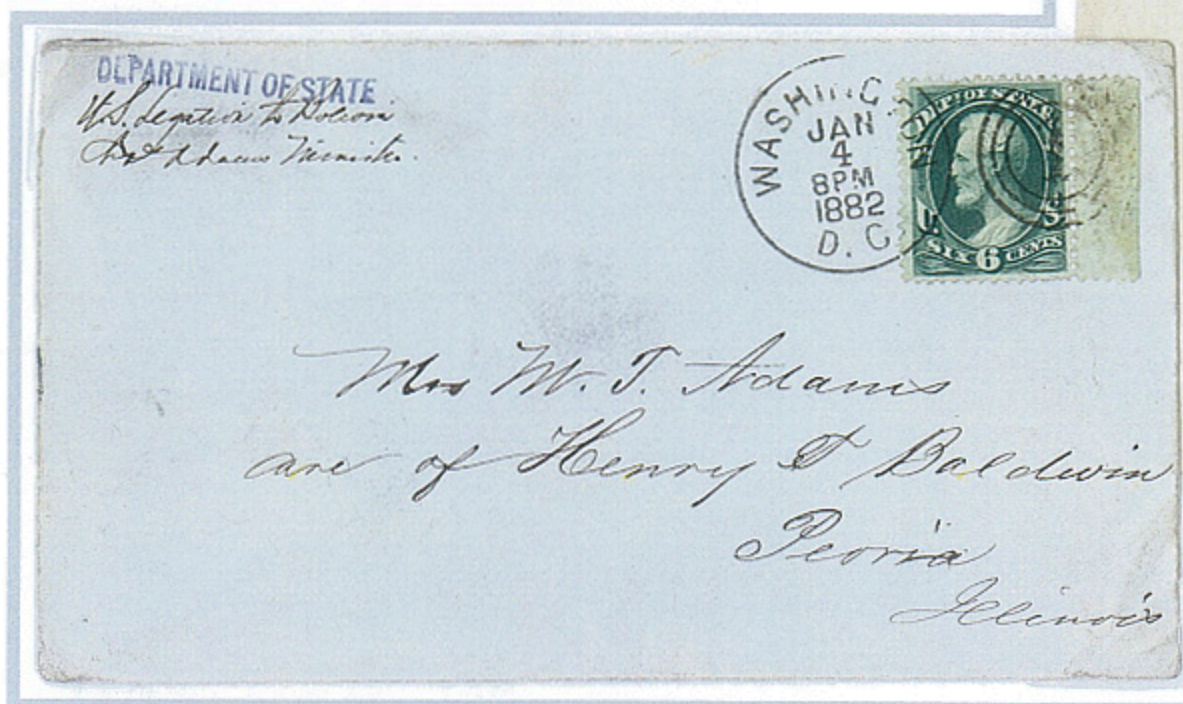 DEPARTMENT OF STATE
U.S. Legation to Bolivia
Adams Minister.
WASHINGTON
JAN
4
8PM
1882
D.C.
DEPT OF STATE
U. S.
SIX 6 CENTS
Mrs W. T. Adams
are of Henry T Baldwin
Peoria
Illinois